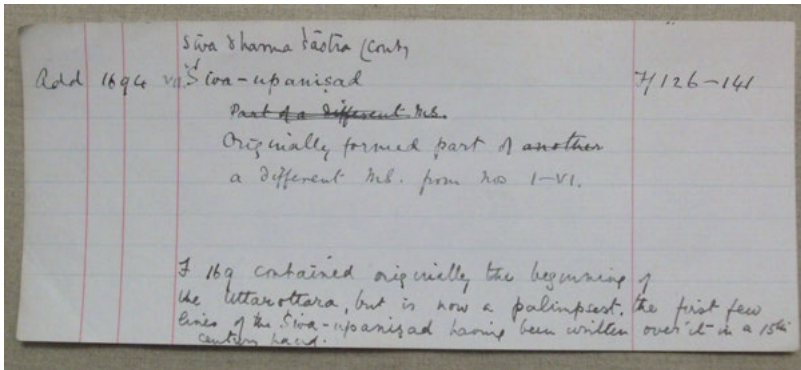 Siva dharma śāstra (cont)
Add 1694 VII Śiva-upaniṣad Ff 126-141
Part of a different MS.
Originally formed part of another
a different MS. from nos I-VI.
F 169 contained originally the beginning of
the Uttarottara, but is now a palimpsest, the first few
lines of the Śiva-upaniṣad having been written over it in a 15th
century hand.